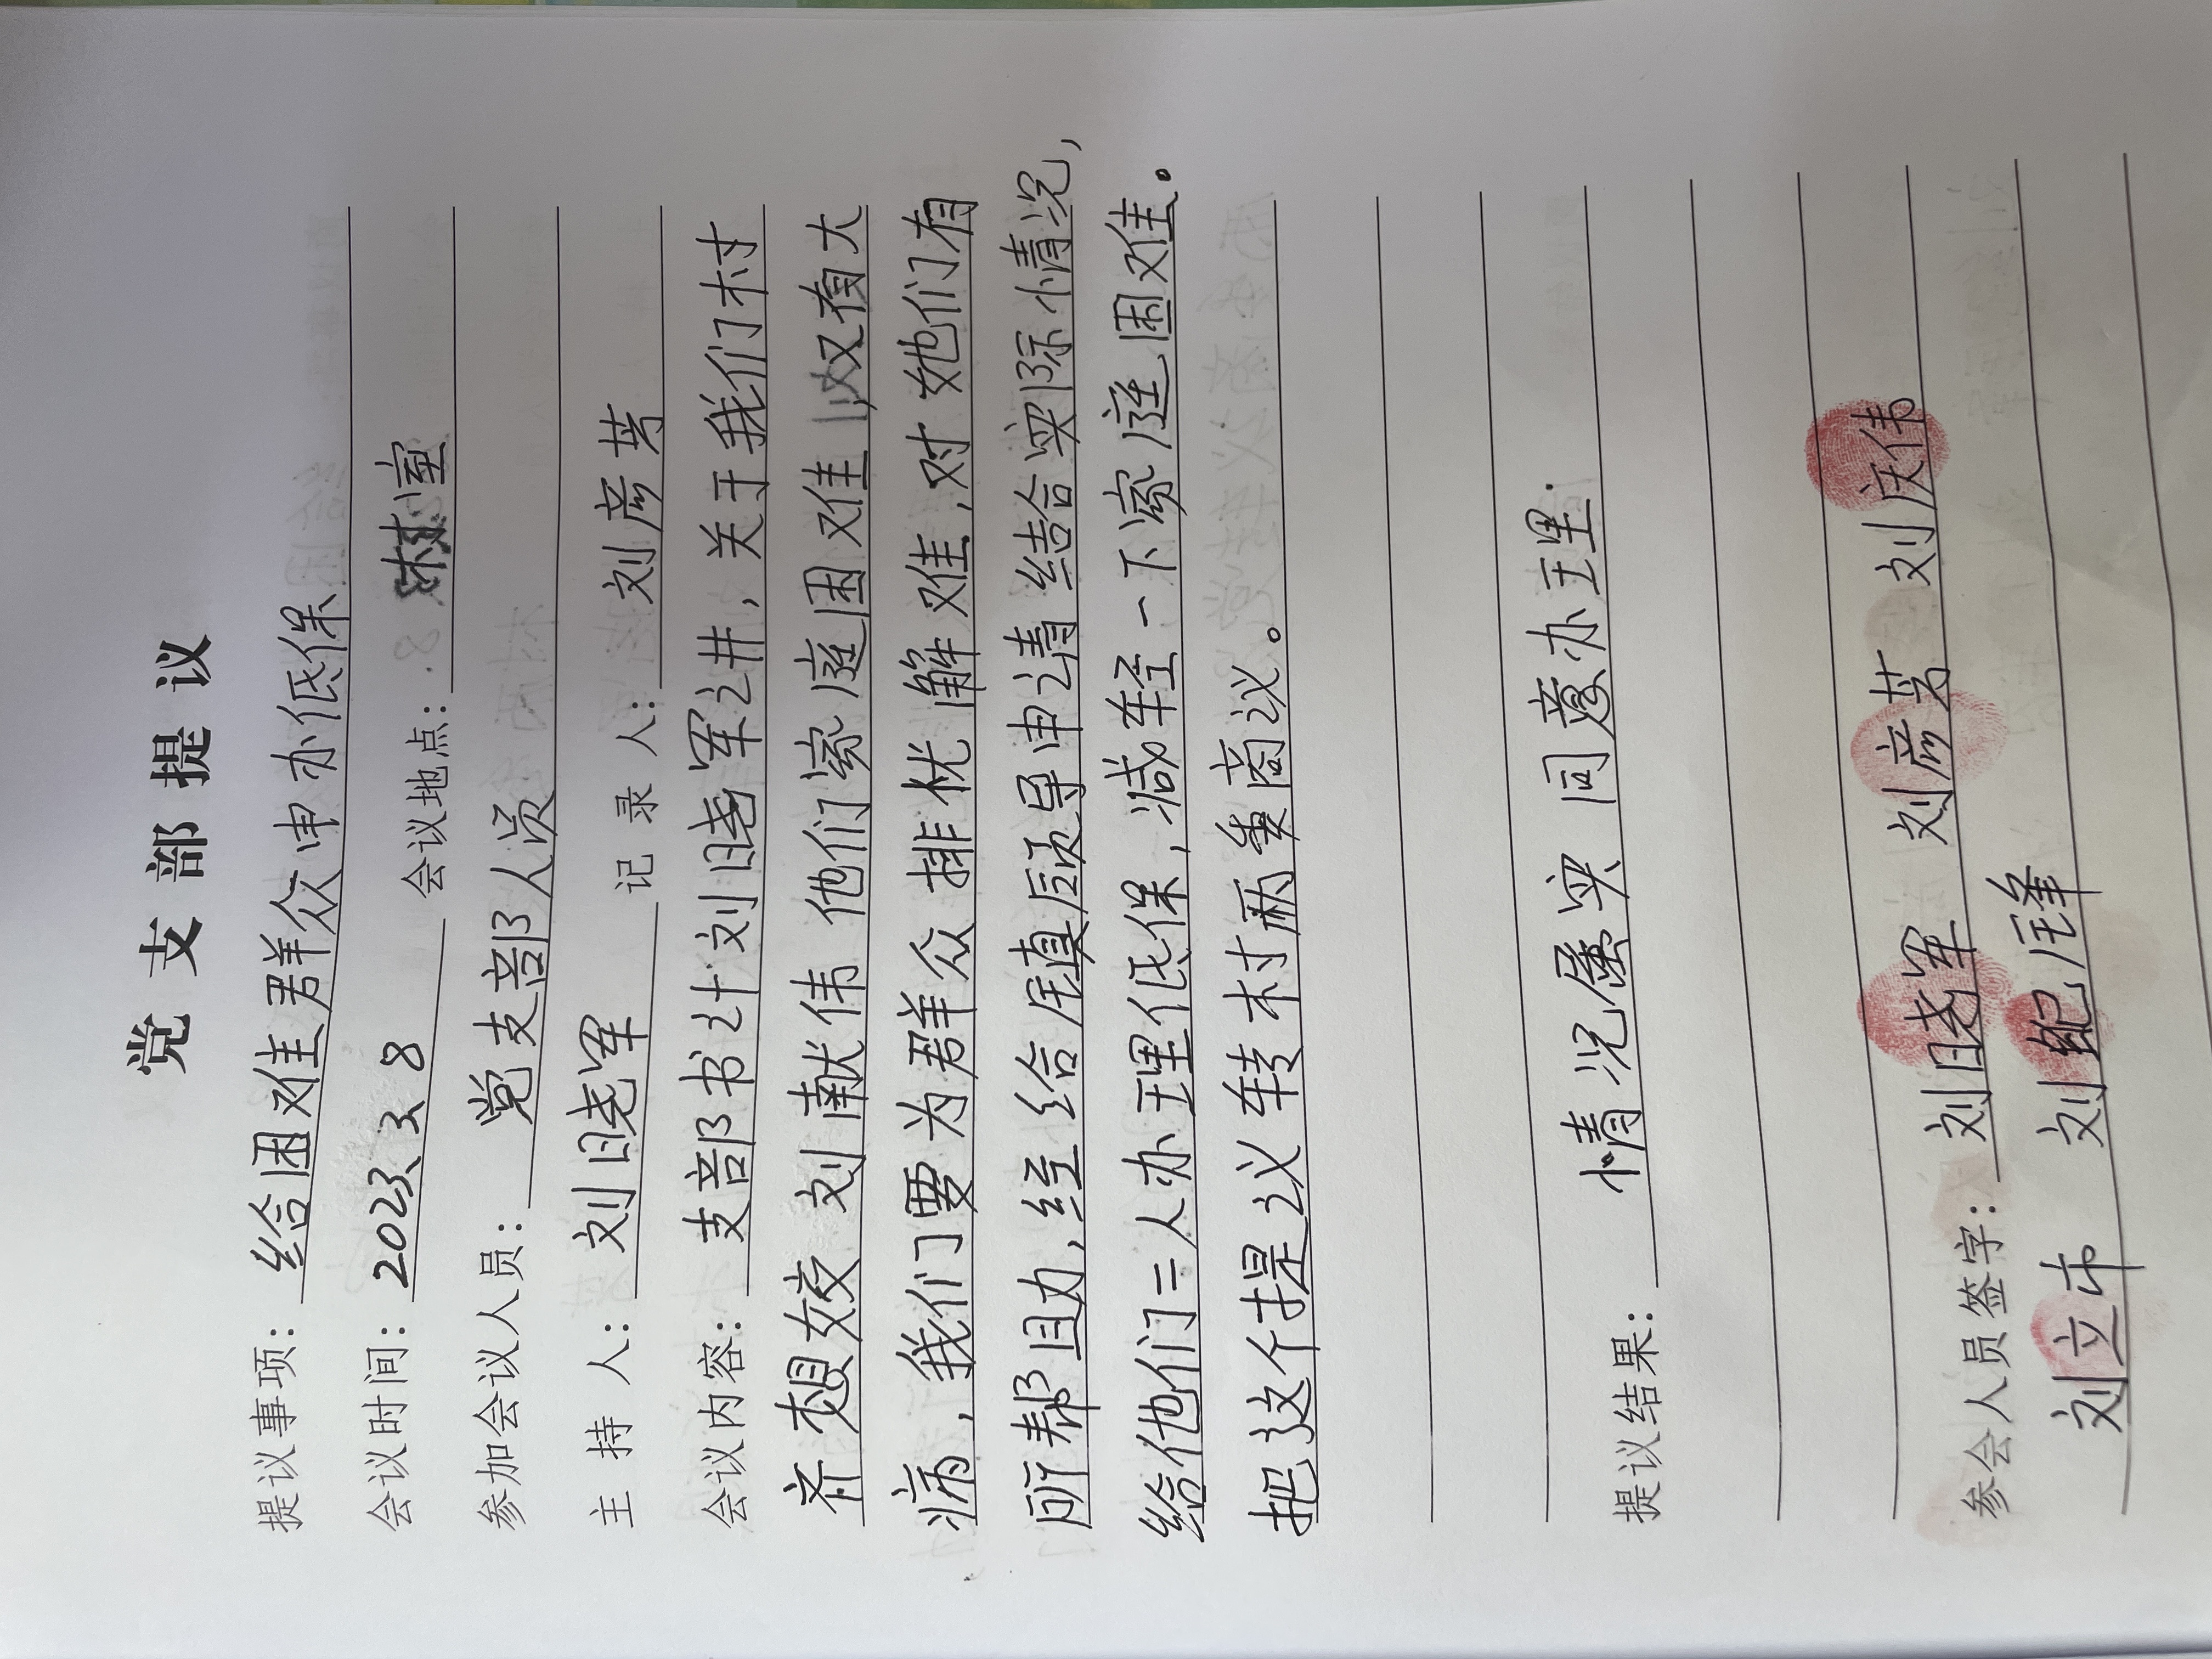 党支部提议
提议事项：给困难群众申办低保
会议时间：2023、3、8 会议地点：村室
参加会议人员：党支部人员
主持人：刘晓军 记录人：刘彦芳
会议内容：支部书计刘晓军讲，关于我们村
齐想姣 刘献伟 他们家庭困难，又有大
病，我们要为群众排忧解难，对她们有
所帮助，经给镇领导申请结合实际情况，
给他们二人办理低保，减轻一下家庭困难。
把这个提议转村两委商议。
提议结果：情况属实 同意办理.
参会人员签字：刘晓军 刘彦芳 刘庆伟
刘立市 刘纪锋